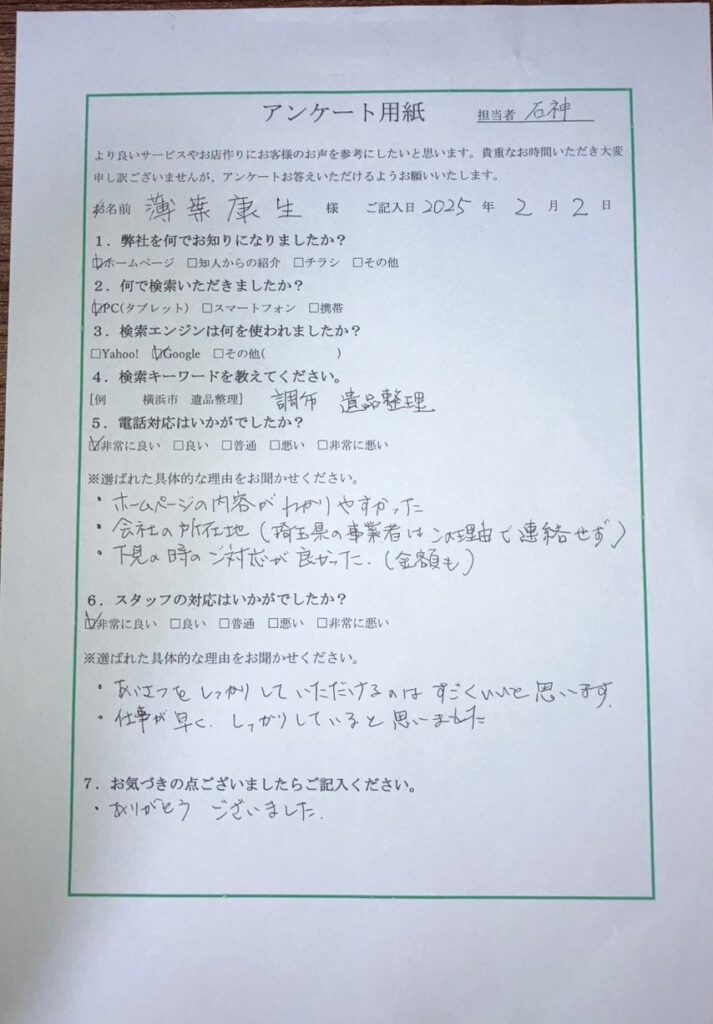 アンケート用紙 担当者 石神
より良いサービスやお店作りにお客様のお声を参考にしたいと思います。貴重なお時間いただき大変
申し訳ございませんが、アンケートお答えいただけるようお願いいたします。
お名前 薄葉康生 様 ご記入日 2025 年 2 月 2 日
1．弊社を何でお知りになりましたか？
☑ホームページ □知人からの紹介 □チラシ □その他
2．何で検索いただきましたか？
☑PC(タブレット) □スマートフォン □携帯
3．検索エンジンは何を使われましたか？
□Yahoo! ☑Google □その他( )
4．検索キーワードを教えてください。
[例 横浜市 遺品整理] 調布 遺品整理
5．電話対応はいかがでしたか？
☑非常に良い □良い □普通 □悪い □非常に悪い
※選ばれた具体的な理由をお聞かせください。
・ホームページの内容がわかりやすかった
・会社の所在地（埼玉県の事業者はこの理由で連絡せず）
・下見の時のご対応が良かった.（金額も）
6．スタッフの対応はいかがでしたか？
☑非常に良い □良い □普通 □悪い □非常に悪い
※選ばれた具体的な理由をお聞かせください。
・あいさつをしっかりしていただけるのはすごくいいと思います.
・仕事が早く. しっかりしていると思いました
7．お気づきの点ございましたらご記入ください。
・ありがとう ございました.